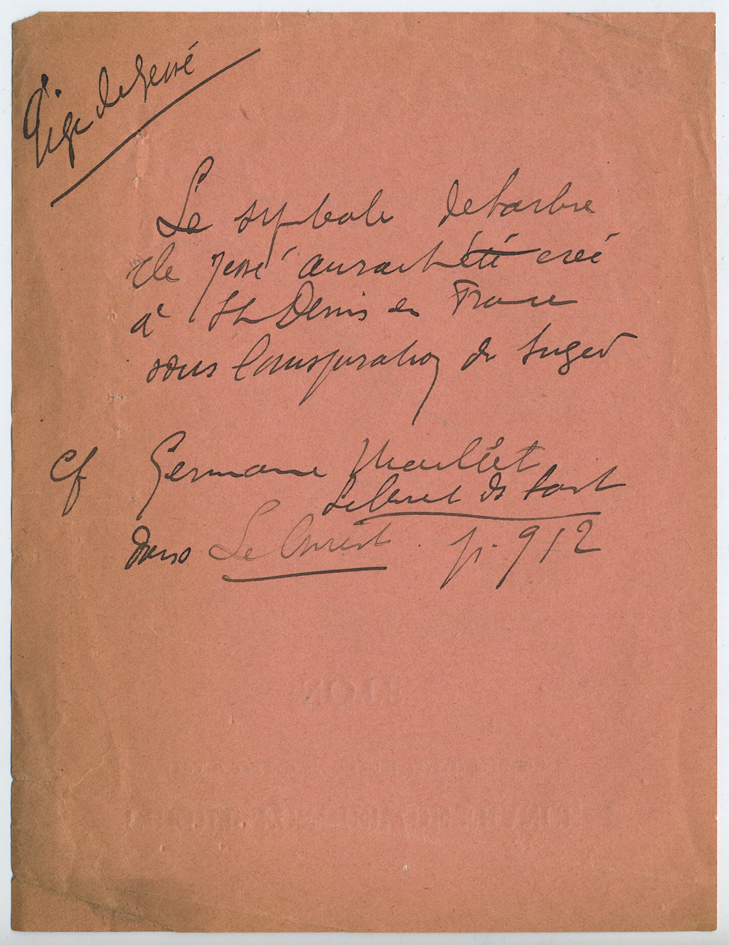 Tige de Jessé
Le symbole de l'arbre
de Jessé aurait été créé
à St Denis en France
sous l'inspiration de Suger
cf Germaine Maillet
de l'art
dans Le Christ p. 912